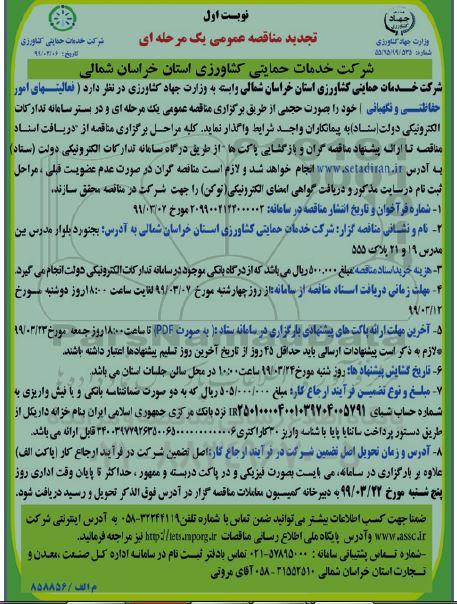 نوبت اول
تجدید مناقصه عمومی یک مرحله ای
وزارت جهاد کشاورزی
شرکت خدمات حمایتی کشاورزی
تاریخ: ۹۹/۰۳/۰۶
شرکت خدمات حمایتی کشاورزی استان خراسان شمالی
شرکت خدمات حمایتی کشاورزی استان خراسان شمالی وابسته به وزارت جهاد کشاورزی در نظر دارد ( فعالیتهای امور
حفاظتی و نگهبانی ) خود را بصورت حجمی از طریق برگزاری مناقصه عمومی یک مرحله ای و در بستر سامانه تدارکات
الکترونیکی دولت(ستاد)به پیمانکاران واجد شرایط واگذار نماید. کلیه مراحل برگزاری مناقصه از "دریافت اسناد
مناقصه تا ارائه پیشنهاد مناقصه گران و بازگشایی پاکت ها " از طریق درگاه سامانه تدارکات الکترونیکی دولت (ستاد)
به آدرس www.setadiran.ir انجام خواهد شد و لازم است مناقصه گران در صورت عدم عضویت قبلی ، مراحل
ثبت نام درسایت مذکور و دریافت گواهی امضای الکترونیکی(توکن) را جهت شرکت در مناقصه محقق سازند،
۱- شماره فرآخوان و تاریخ انتشار مناقصه در سامانه: مورخ ۹۹/۰۳/۰۷
۲- نام و نشانی مناقصه گزار: شرکت خدمات حمایتی کشاورزی استان خراسان شمالی به آدرس: بجنورد بلوار مدرس بین
مدرس ۱۹ و ۲۱ پلاک ۵۵۵
۳- هزینه خرید اسناد مناقصه:مبلغ ۵۰۰.۰۰۰ ریال می باشد که از درگاه بانکی موجود در سامانه تدارکات الکترونیکی دولت انجام می گیرد.
۴- مهلت زمانی دریافت اسناد مناقصه از سامانه:از روز چهارشنبه مورخ ۹۹/۰۳/۰۷ لغایت ساعت ۱۸:۰۰روز دوشنبه مورخ
۹۹/۰۳/۱۲
۵- آخرین مهلت ارائه پاکت های پیشنهادی بارگزاری در سامانه ستاد :( به صورت PDF) تا ساعت ۱۸:۰۰روز جمعه مورخ۹۹/۰۳/۲۳
*لازم به ذکر است پیشنهادات ارسالی باید حداقل ۴۵ روز از تاریخ آخرین روز تسلیم پیشنهادها اعتبار داشته باشند.
۶- تاریخ گشایش پیشنهاد ها: روز شنبه مورخ۹۹/۰۳/۲۴ ساعت ۱۰:۰۰ در محل سالن جلسات استان می باشد.
۷- مبلغ و نوع تضمین فرآیند ارجاع کار: مبلغ ۵۰۵/۰۰۰/۰۰۰ ریال که به دو صورت ضمانتنامه بانکی و یا فیش واریزی به
شماره حساب شبای نزد بانک مرکزی جمهوری اسلامی ایران بنام خزانه داریکل از
طریق دستور پرداخت ساتنا یا پایا با شناسه واریز ۳۰ کاراکتری قابل ارائه می باشد.
۸- آدرس و زمان تحویل اصل تضمین شرکت در فرآیند ارجاع کار:اصل تضمین شرکت در فرآیند ارجاع کار (پاکت الف)
علاوه بر بارگزاری در سامانه، می بایست بصورت فیزیکی و در پاکت دربسته و ممهور ، حداکثر تا پایان وقت اداری روز
پنج شنبه مورخ ۹۹/۰۳/۲۲ به دبیرخانه کمیسیون معاملات مناقصه گزار در آدرس فوق الذکر تحویل و رسید دریافت شود.
ضمنا جهت کسب اطلاعات بیشتر می توانید ضمن تماس با شماره تلفن ۳۲۲۴۴۱۱۹-۰۵۸ به آدرس اینترنتی شرکت
www.assc.ir وآدرس پایگاه ملی اطلاع رسانی مناقصات http://iets.mporg.ir نیز مراجعه فرمائید.
-شماره تماس پشتیبانی سامانه : ۵۷۸۹۵۰۰۰-۰۲۱ تماس بادفتر ثبت نام در سامانه اداره کل صنعت ،معدن و
تجارت استان خراسان شمالی ۳۱۵۵۲۵۱۰ -۰۵۸ آقای مروتی
م الف / ۸۵۸۸۵۶